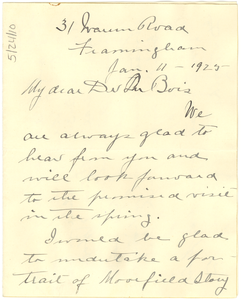 31 Warren Road
Framingham
Jan. 4 - 1925
My dear Dr Du Bois
We
are always glad to
hear from you and
will look forward
to the promised visit
in the spring.
I would be glad
to undertake a por-
trait of Moorfield Story